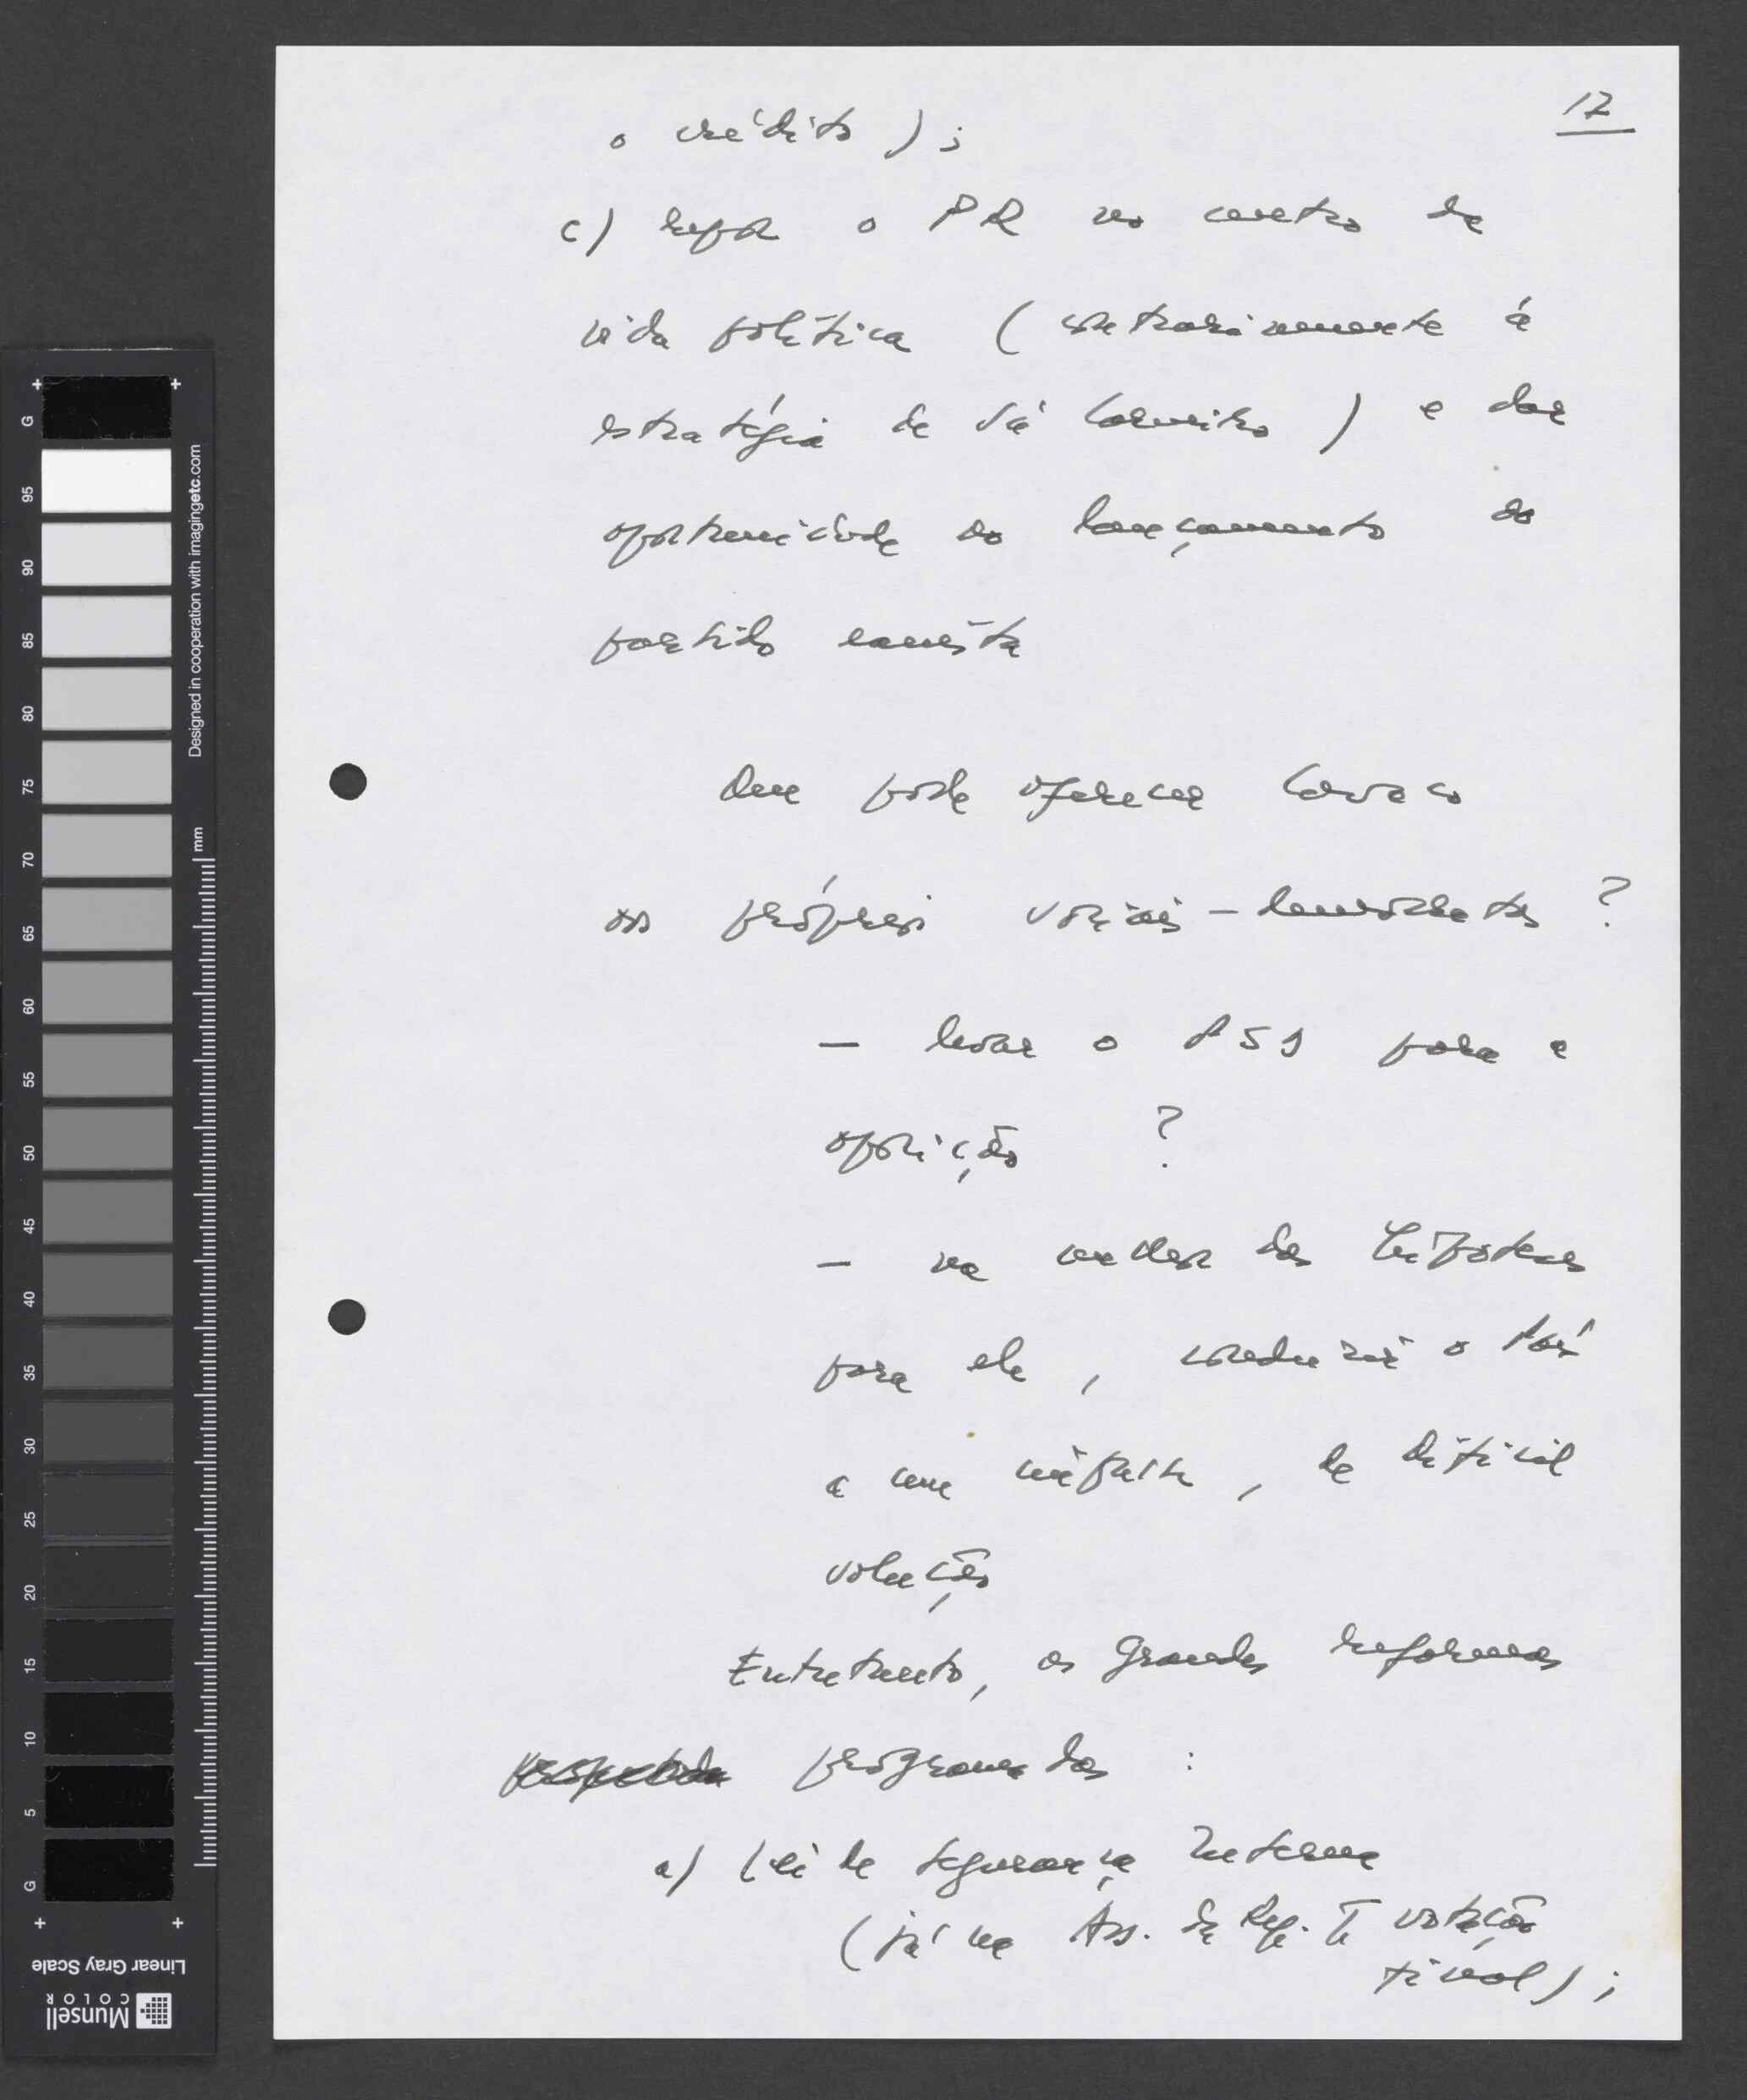 17
o crédito);
c) repor o PR no centro da
vida política (contrariamente à
estratégia de Sá Carneiro) e dar
oportunidade ao lançamento do
partido eanista
Que pode oferecer Cavaco
aos próprios sociais-democratas?
— levar o PSD para a
oposição ?
— na melhor das hipóteses
para ele, conduzir o País
a um impasse, de difícil
solução
Entretanto, as grandes reformas
programadas :
a) Lei de Segurança Interna
(já na Ass. da Rep. votação
final);
G
95
90
85
80
75
70
65
60
55
50
45
40
35
30
25
20
15
10
5
G
Designed in cooperation with imagingetc.com
mm
Linear Gray Scale
Munsell
COLOR